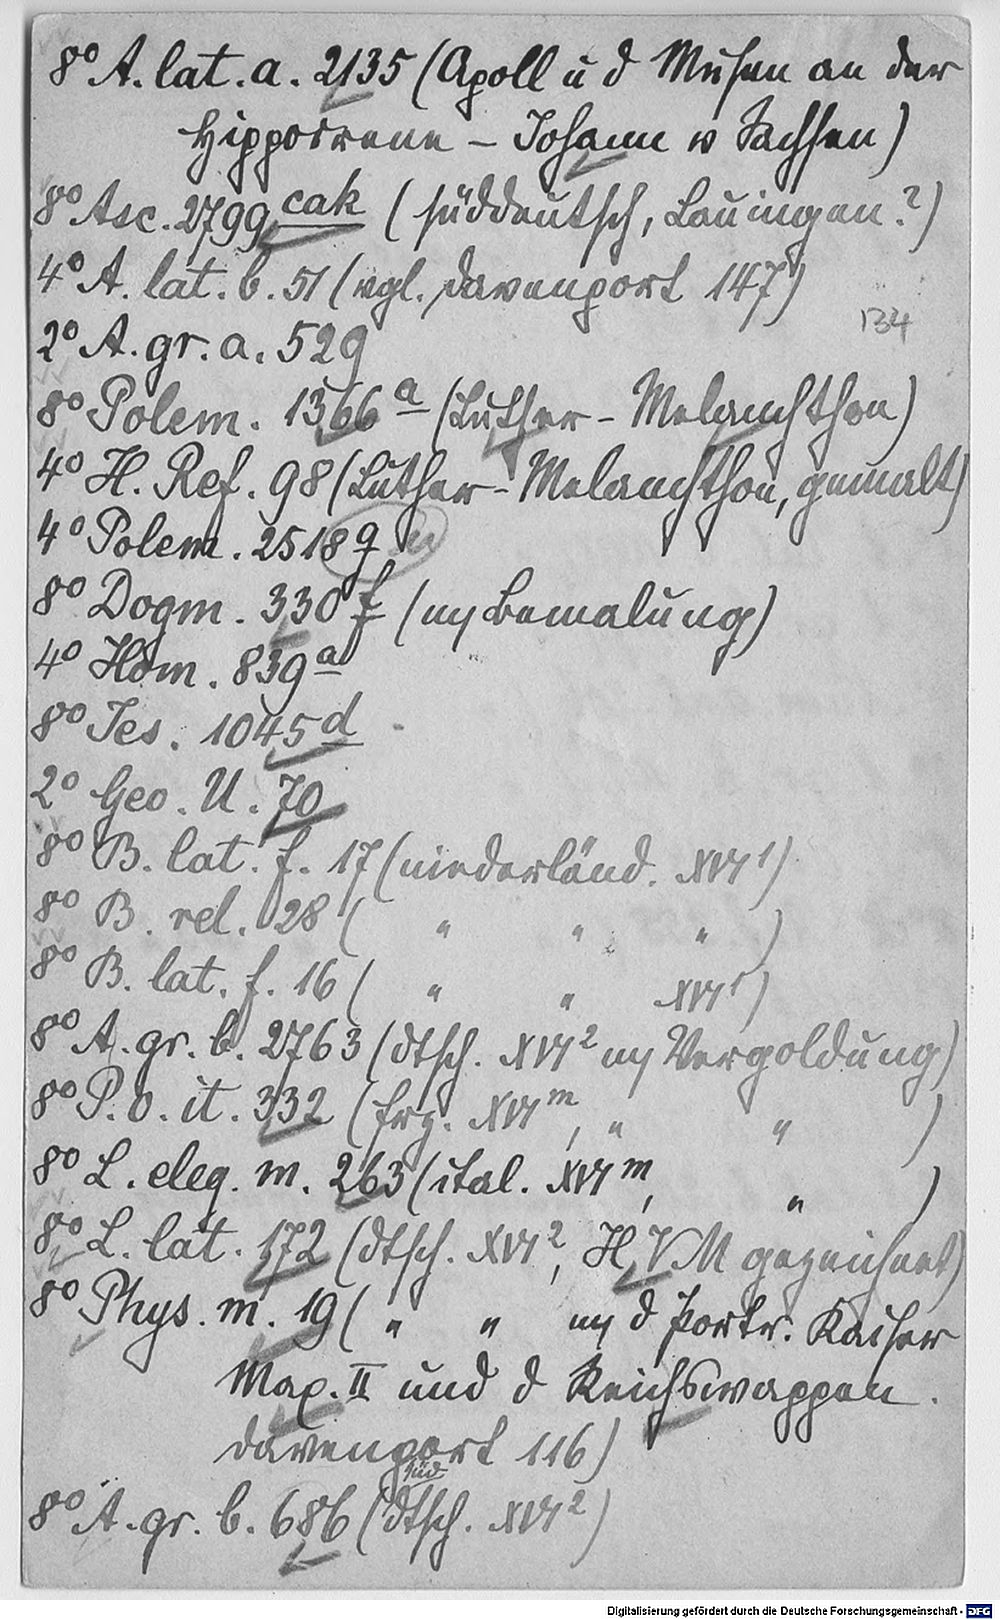 8° A. lat. a. 2135 (Apoll u d Musen an der
Hippokrene – Johann v Sachsen)
8° Asc. 2799 cak (süddeutsch, Lauingen?)
4° A. lat. b. 51 (vgl. Davenport 147)
134
2° A. gr. a. 529
8° Polem. 1366 a (Luther – Melanchthon)
4° H. Ref. 98 (Luther – Melanchthon, gemalt)
4° Polem. 2518 q
8° Dogm. 330 f (m Bemalung)
4° Hom. 839 a
8° Jes. 1045 d
2° Geo. U. 70
8° B. lat. f. 17 (niederländ. XVI 1)
8° B. rel. 28 ( " " " )
8° B. lat. f. 16 ( " " XVI 1)
8° A. gr. b. 2763 (dtsch. XVI 2 m Vergoldung)
8° P. o. it. 332 (frz. XVI m, " " )
8° L. eleg. m. 263 (ital. XVI m, " )
8° L. lat. 172 (dtsch. XVI 2, H V M gezeichnet)
8° Phys. m. 19 ( " " m d Portr. Kaiser
Max. II und d Reichswappen.
Davenport 116)
süd
8° A. gr. b. 686 (dtsch. XVI 2)
Digitalisierung gefördert durch die Deutsche Forschungsgemeinschaft - DFG